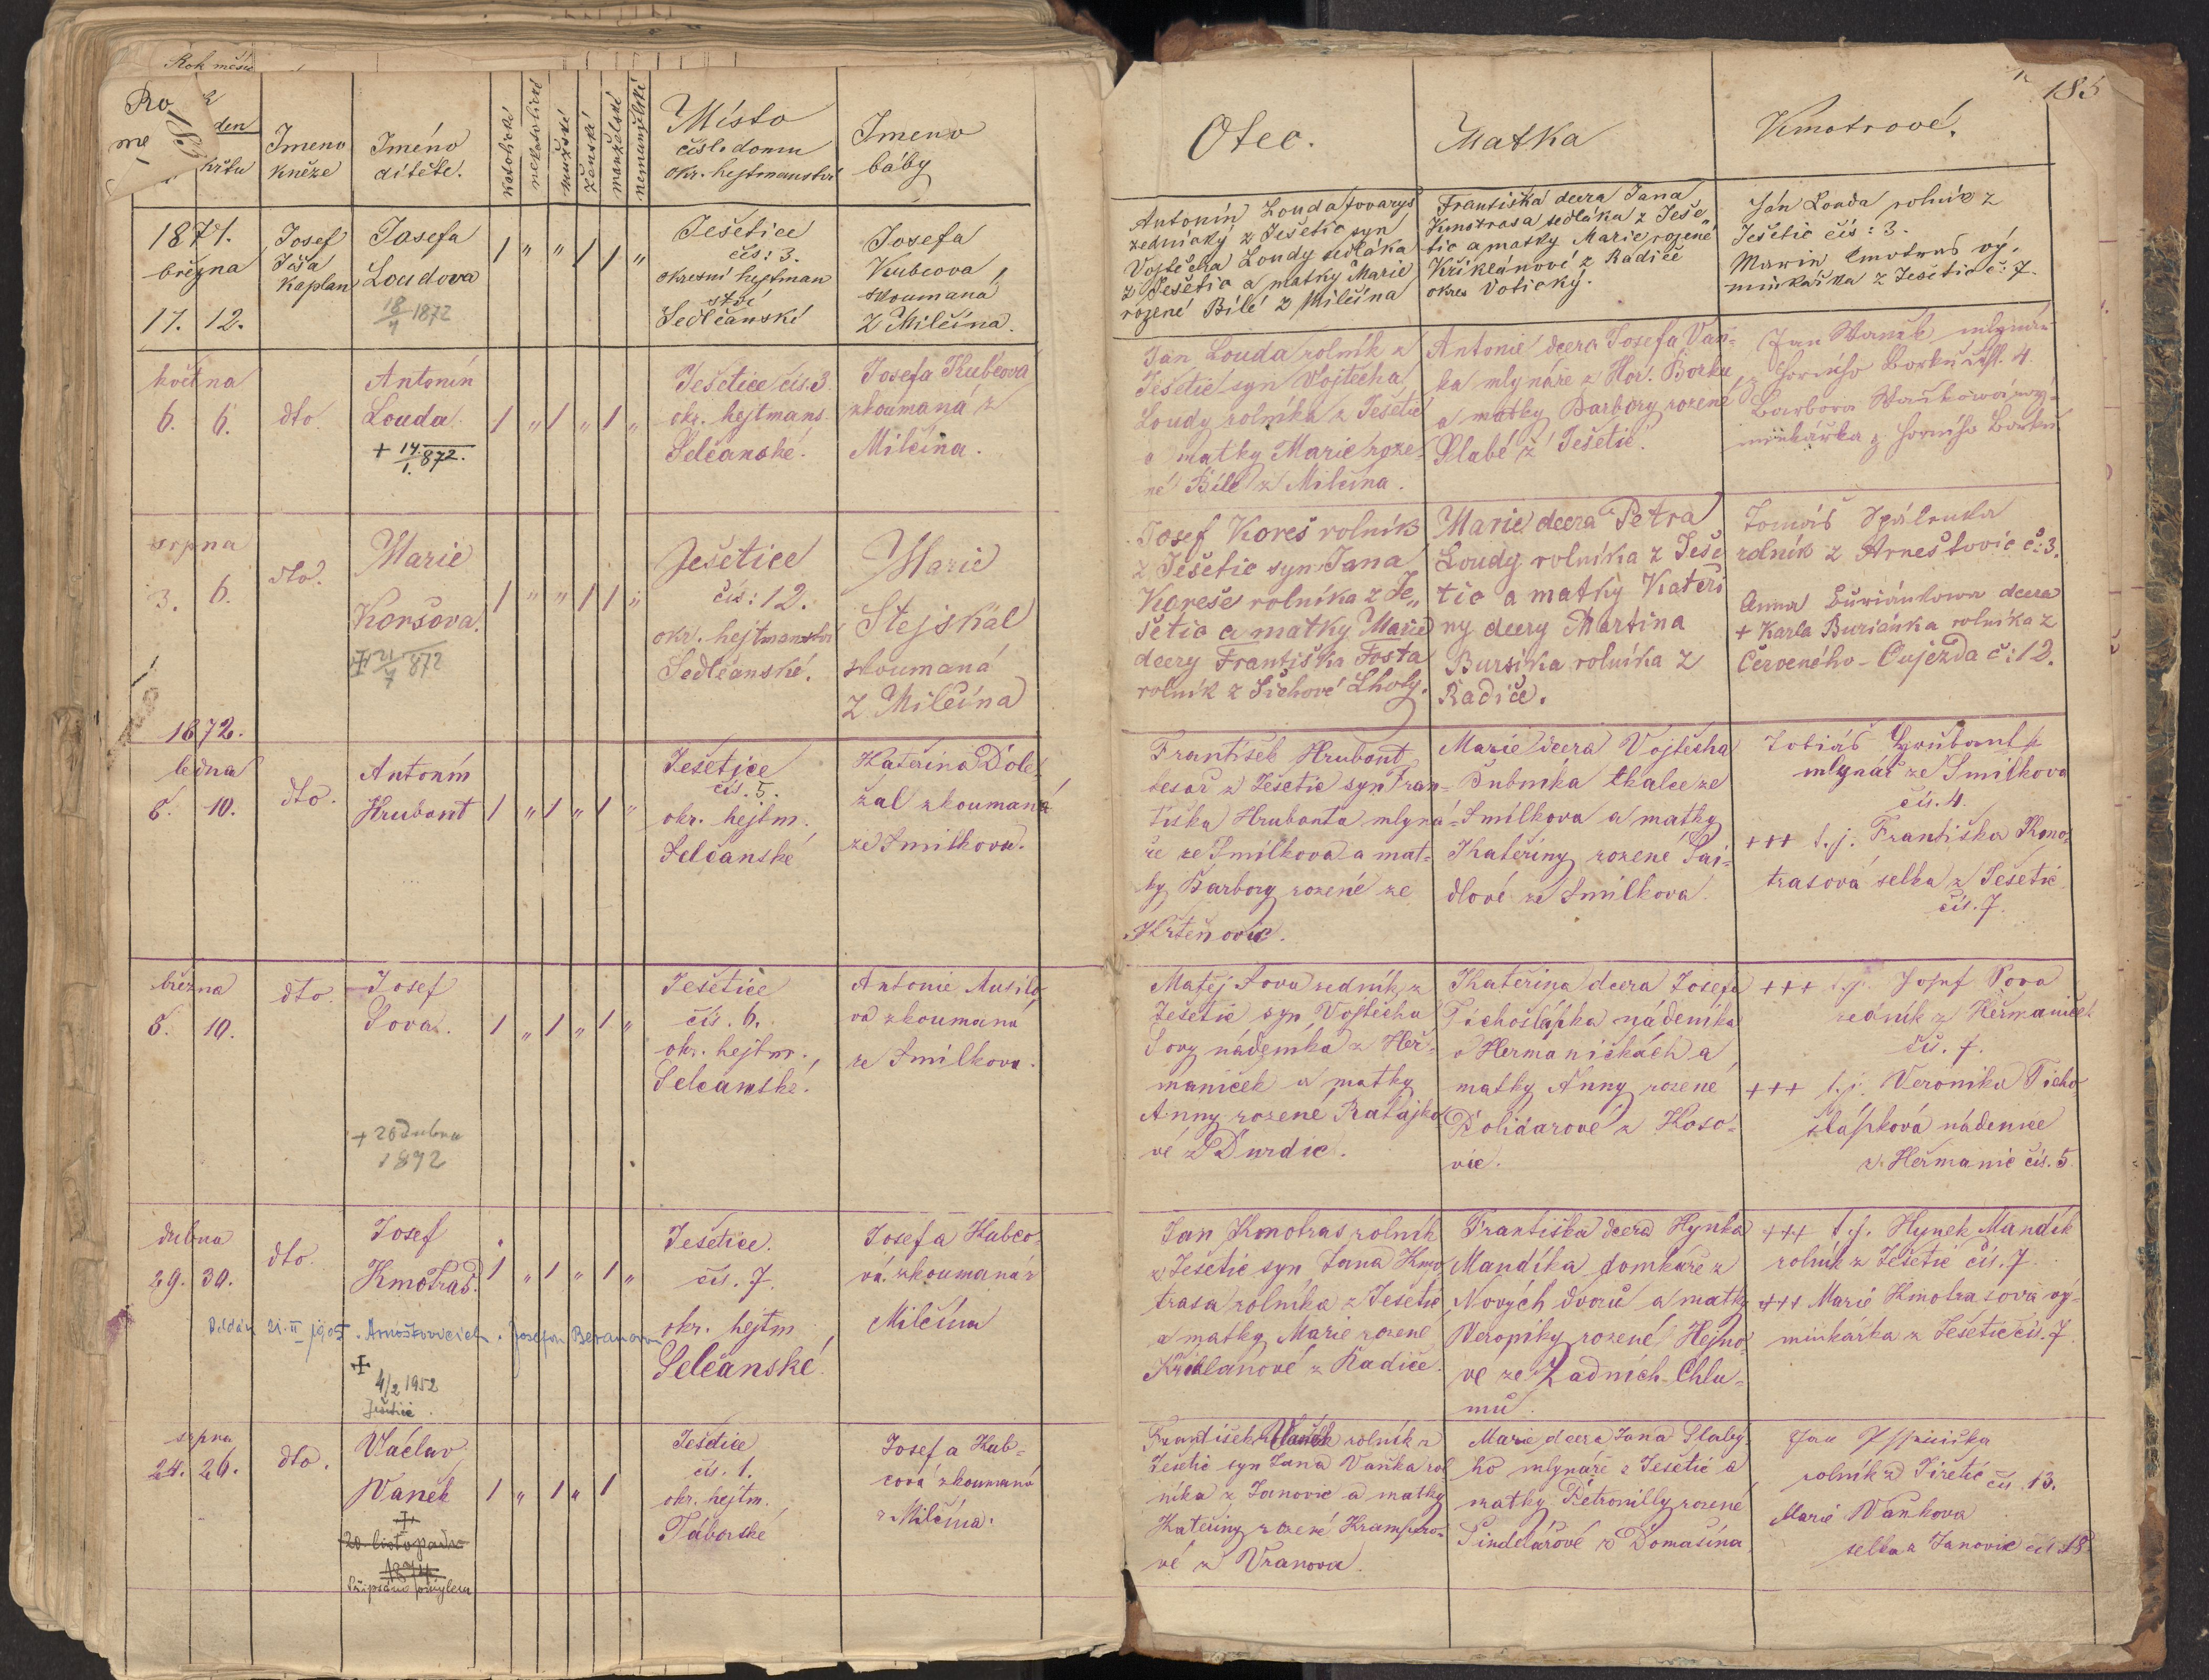 Rok měsíc
Ro
me
185
den
křtu
Imeno
kněze
Iméno
dítěte.
katolické
nekatolické
mužské
ženské
manželské
nemanželské
Místo
čísl. domu
okr. hejtmanství
Imeno
báby
Otec.
Matka
Kmotrové.
185
1871.
března
17. 12.
Josef
Kaplan
Josefa
Loudova
18/4 1872
1 " " 1 1 "
Ješetice
čís: 3.
okresní hejtman
ství
Sedlčanské
Josefa
Kubcová,
zkoumaná
z Milčína.
Antonín Louda tovaryš
zednický z Ješetic syn
Vojtěcha Loudy sedláka
z Ješetic a matky Marie
rozené Bílé z Milčína
Františka dcera Jana
Kmotrasa sedláka z Ješe„
tic a matky Marie rozené
Křiklánové z Radíče
okres Votický.
Ján Louda rolník z
Ješetic čís: 3.
Marie Kmotras vý„
minkářka z Ješetic č: 7.
května
6. 6.
dto.
Antonín
Louda
+ 14/1. 872.
1 " 1 " 1 "
Ješetice čís. 3
okr. hejtmans.
Selčanské.
Josefa Kubcova
zkoumaná z
Milčína.
Jan Louda rolník z
Ješetic syn Vojtěcha
Loudy rolníka z Ješetic
a matky Marie roze-
né Bílé z Milčína.
Antonie dcera Josefa Vaň-
ka mlynáře z Hoř. Borku,
a matky Barbory rozené
Slabé z Ješetic.
Jan Waněk mlynář
z Horního Borku čísl. 4.
Barbora Waňkowá wý-
minkářka z Horního Borku
srpna
3. 6.
dto.
Marie
Koršova.
+ 21/7 872
1 " " 1 1 "
Ješetice
čís: 12.
okr. hejtmanství
Sedlčanské.
Marie
Stejskal
zkoumaná
z Milčína
Josef Koreš rolník
z Ješetic syn Jana
Koreše rolníka z Je„
šetic a matky Marie
dcery Františka Fošta
rolník z Lhoty.
Marie dcera Petra
Loudy rolníka z Ješe
tic a matky Kateři
ny dcery Martina
Bursíka rolníka z
Radíče.
Tomáš Spálenka
rolník z Arneštovic č: 3.
Anna Buriánkowa dcera
+ Karla Buriánka rolníka z
Červeného-Oujezda č: 12.
1872.
ledna
8. 10.
dto.
Antonín
Hrubant
1 " 1 " 1 "
Ješetice
čís. 5.
okr. hejtm.
Selčanské
Kateřina Dole-
žal zkoumaná
ze Smilkova.
František Hrubant
tesař z Ješetic syn Fran-
tiška Hrubanta mlyná-
ře ze Smilkova a mat-
ky Barbory rozené ze
Křtěnovic.
Marie dcera Vojtěcha
Dubníka tkalce ze
Smilkova a matky
Kateřiny rozené Šai-
dlové ze Smilkova.
Tobiáš Hrubant
mlynář ze Smilkova
čís. 4.
+++ t.j. Františka Kmo-
trasová selka z Ješetic
čís. 7.
března
8. 10.
dto.
Josef
Sova.
+ 26 dubna
1892
1 " 1 " 1 "
Ješetice
čís. 6.
okr. hejtm.
Selčanské.
Antonie Musilo
vá zkoumaná
ze Smilkova.
Matěj Sova zedník z
Ješetic syn Vojtěcha
Sovy nádeníka z Heř-
maniček a matky
Anny rozené Ratajko
vé z Durdic.
Kateřina dcera Josefa
Tichošlápka nádeníka
v Heřmaničkách a
matky Anny rozené
Poličarové z Koso-
vic.
+++ t.j. Josef Sova
zedník z Heřmaniček
čís. 7.
+++ t.j. Veronika Ticho
šlápková nádenice
z Heřmanic čís. 5.
dubna
29. 30.
dto.
Josef
Kmotras.
1 " 1 " 1 "
Oddán 21. II 1905. Arnoštovicích. Josefou Beranovou
+
4/2 1952
Ješetice.
Ješetice.
čís. 7.
okr. hejtm.
Selčanské
Josefa Kubco-
vá zkoumaná z
Milčína
Jan Kmotras rolník
z Ješetic syn Jana Kmo
trasa rolníka z Ješetic
a matky Marie rozené
Křiklanové z Radíče.
Františka dcera Hynka
Mandíka domkaře z
Nových dvorů a matky
Veroniky rozené Hejno
vé ze Zadních-Chlu-
mů.
+++ t.j. Hynek Mandík
rolník z Ješetic čís. 7.
+++ Marie Kmotrasova vý-
minkářka z Ješetic čís. 7.
srpna
24. 26.
dto.
Václav
Waněk
+
20. listopadu
1874
Připsáno omylem
1 " 1 " 1
Ješetice
čís. 1.
okr. hejtm.
Táborské
Josefa Kub-
cová zkoumaná
z Milčína.
František Waněk rolník z
Ješetic syn Jana Vaňka rol
níka z Janovic a matky
Kateřiny rozené
vé z Vranova
Marie dcera Jana Slabý-
ho mlynáře z Ješetic a
matky Petronilly rozené
Šindelářové z Domašína
Jan
rolník z Jiřetic čís. 13.
Marie Wankova
selka z Janovic čís 18.